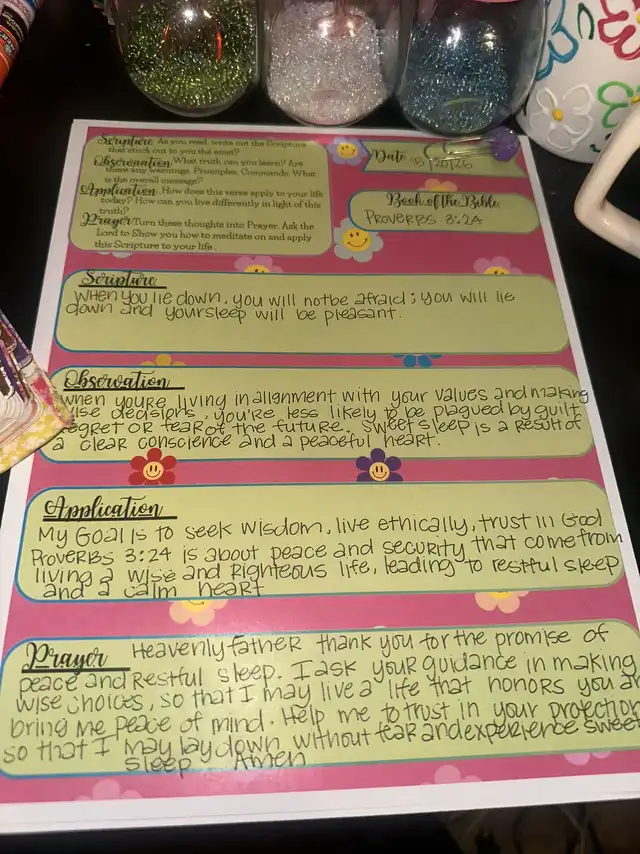 Scripture As you read, write out the Scripture
that stuck out to you the most?
Observation What truth can you learn? Are
there any warnings. Principles. Commands. What
is the overall message?
Application How does this verse apply to your life
today? How can you live differently in light of this
truth?
Prayer Turn these thoughts into Prayer. Ask the
Lord to Show you how to meditate on and apply
this Scripture to your life.
Date
Book of the Bible
Proverbs 3:24
Scripture
When you lie down, you will not be afraid; you will lie
down and your sleep will be pleasant.
Observation
when you're living in alignment with your values and making
wise decisions, you're less likely to be plagued by guilt
regret or fear of the future. Sweet sleep is a result of
a clear conscience and a peaceful heart.
Application
My Goal is to seek wisdom, live ethically, trust in God
Proverbs 3:24 is about peace and security that come from
living a wise and Righteous life, leading to restful sleep
and a calm heart
Prayer Heavenly father thank you for the promise of
peace and Restful sleep. I ask your guidance in making
wise choices, so that I may live a life that honors you an
bring me peace of mind. Help me to trust in your protection
so that I may lay down without fear and experience sweet
sleep. Amen